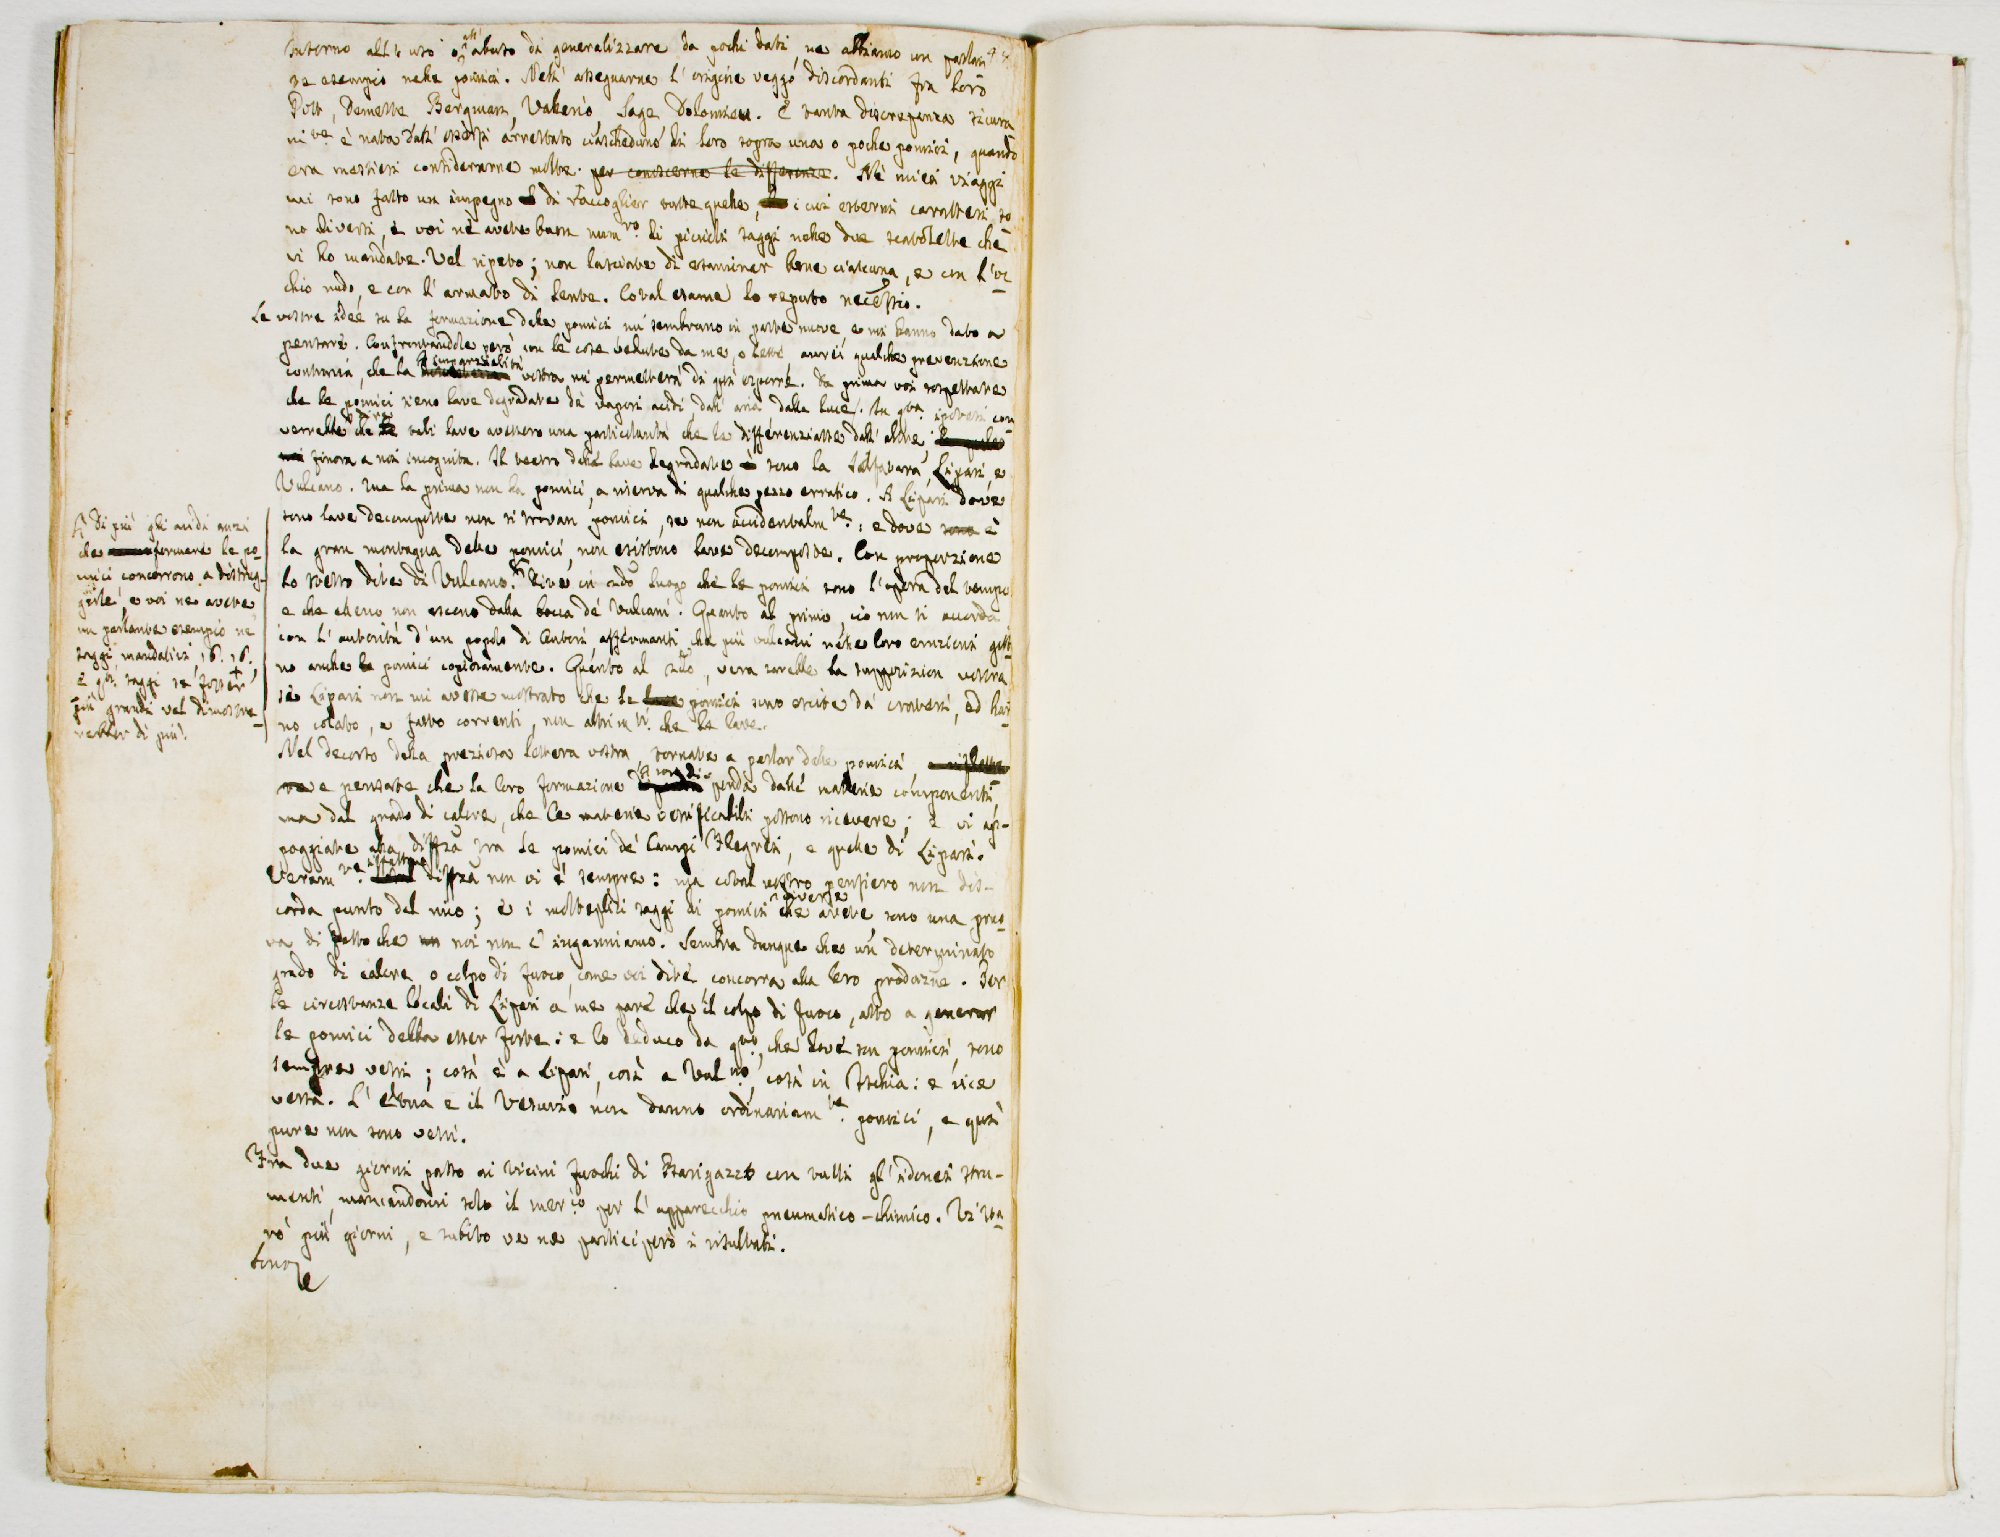 Intorno all'uso o all' abuso di generalizzare da pochi dati ne abbiamo un parlan
te esempio nelle pomici. Nell' assegnarne l' origine veggo discordanti fra loro
Pott, Demeste, Bergman, Valerio, Sage Dolomieu. E tanta discrepanza sicura
m.te è nata dall' essersi arrestato ciascheduno di loro sopra una o poche pomici, quando
era mestieri considerarne molte. per conoscerne le differenze. Ne' miei viaggi
mi sono fatto un impegno di raccoglier tutte quelle, i cui esterni caratteri so
no diversi, e voi ne avete buon num.ro di piccioli saggi nelle due scatolette che
vi ho mandate. Vel ripeto; non lasciate di esaminar bene ciascuna, e con l' oc
chio nudo, e con l' armato di lente. Cotal esame lo reputo necessio.
Le vostre idee su la formazione delle pomici mi sembrano in parte nuove, e mi hanno dato a
pensare. Confrontandole però con le cose vedute da me, o lette avrei qualche prevenzione
contraria, che la imparzialità vostra mi permetterà di qui esporre. Da prima voi sospettate
che le pomici sieno lave degradate da' vapori acidi, dall' aria, dalla luce. In q.ta ipotesi con
verrebbe dire che tali lave avessero una particolarità che le differenziasse dall' altre,
finora a noi incognita. Il teatro delle lave degradate sono la Solfatara, Lipari, e
Vulcano. Ma la prima non ha pomici, a riserva di qualche pezzo erratico. A Lipari dove
sono lave decomposte non si trovan pomici, se non accidentalm.te: e dove sono è
la gran montagna delle pomici, non esistono lave decomposte. Con proporzione
lo stesso dite di Vulcano. Dite in 2do luogo che le pomici sono l' opera del tempo
e che elleno non escono dalla bocca de' Vulcani. Quanto al primo, ciò non si accorda
con l' autorità d' un popolo di Autori affermanti che più vulcani nelle loro eruzioni getta
no anche le pomici copiosamente. Quanto al 2do, vera sarebbe la supposizion vostra
se Lipari non mi avesse mostrato che le lave pomici sono escite da' crateri, ed han
no colato, e fatto correnti, non altrim.ti che le lave.
Nel decorso della preziosa lettera vostra, tornate a parlar delle pomici,
e pensate che la loro formazione non dipenda dalle materie componenti,
ma dal grado di calore, che le materie vetrificabili possono ricevere; e vi ap-
poggiate alla diffza fra le pomici de' Campi Flegrei, e quelle di Lipari.
Veram.te diffza non vi è sempre: ma cotal vostro pensiero non dis-
corda punto dal mio; e i molteplici saggi di pomici diverse che avete, sono una pruo
va di fatto che noi non c' inganniamo. Sembra dunque che un determinato
grado di calore o colpo di fuoco, come voi dite concorra alla loro produzne. Per
le circostanze locali di Lipari a me pare che il colpo di fuoco, atto a generar
le pomici debba esser forte: e lo deduco da q.to, che dove son pomici, sono
sempre vetri; così è a Lipari, così a Vulno, così in Ischia: e vice
versa. L' Etna e il Vesuvio non danno ordinariam.te pomici, e quivi
pure non sono vetri.
Fra due giorni passo ai vicini fuochi di Barigazzo con tutti gl' idonei stru-
menti, mancandomi solo il merc.io per l' apparecchio pneumatico-chimico. Vi sta
rò più giorni, e subito ve ne parteciperò i risultati.
Sono
Di più gli acidi anzi
che formare le po
mici concorrono a distrug-
gerle, e voi ne avete
un parlante esempio ne'
saggi mandativi
e q.ti saggi se fosser
più grandi vel dimostre
rebber di più.